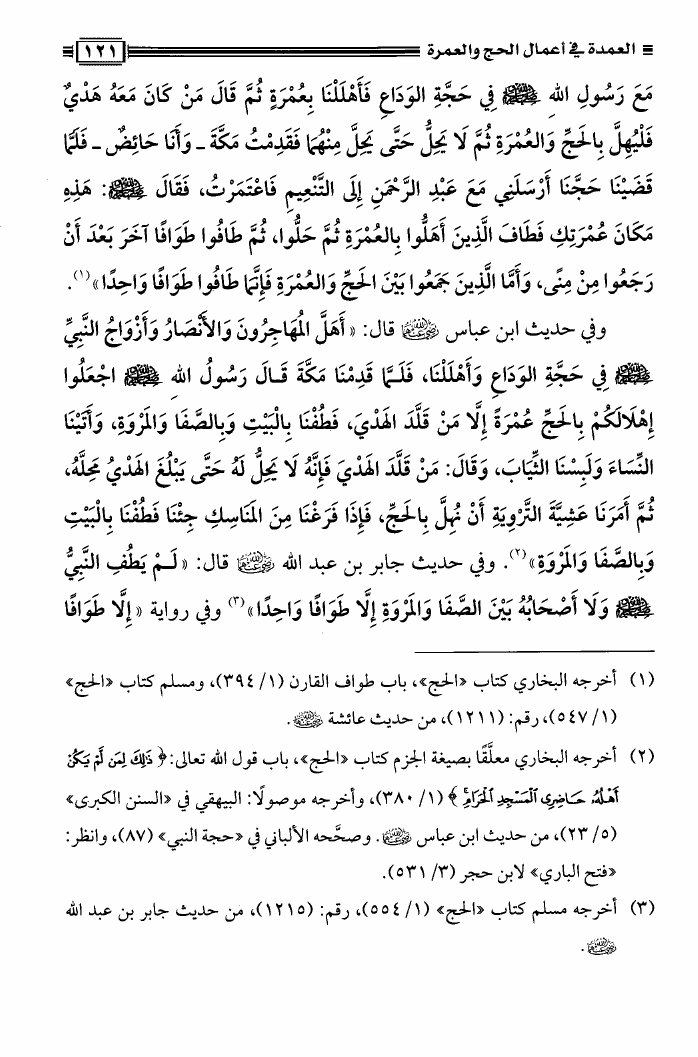 العمدة في أعمال الحج والعمرة ١٢١
مَعَ رَسُولِ اللهِ ﷺ فِي حَجَّةِ الوَدَاعِ فَأَهْلَلْنَا بِعُمْرَةٍ ثُمَّ قَالَ مَنْ كَانَ مَعَهُ هَدْيٌ
فَلْيُهِلَّ بِالحَجِّ وَالعُمْرَةِ ثُمَّ لَا يَحِلُّ حَتَّى يَحِلَّ مِنْهُمَا فَقَدِمْتُ مَكَّةَ - وَأَنَا حَائِضٌ - فَلَمَّا
قَضَيْنَا حَجَّنَا أَرْسَلَنِي مَعَ عَبْدِ الرَّحْمَنِ إِلَى التَّنْعِيمِ فَاعْتَمَرْتُ، فَقَالَ ﷺ: هَذِهِ
مَكَانَ عُمْرَتِكِ فَطَافَ الَّذِينَ أَهَلُّوا بِالعُمْرَةِ ثُمَّ حَلُّوا، ثُمَّ طَافُوا طَوَافًا آخَرَ بَعْدَ أَنْ
رَجَعُوا مِنْ مِنًى، وَأَمَّا الَّذِينَ جَمَعُوا بَيْنَ الحَجِّ وَالعُمْرَةِ فَإِنَّمَا طَافُوا طَوَافًا وَاحِدًا»(١).
وفي حديث ابن عباس قال: «أَهَلَّ المُهَاجِرُونَ وَالأَنْصَارُ وَأَزْوَاجُ النَّبِيِّ
ﷺ فِي حَجَّةِ الوَدَاعِ وَأَهْلَلْنَا، فَلَمَّا قَدِمْنَا مَكَّةَ قَالَ رَسُولُ اللهِ ﷺ اجْعَلُوا
إِهْلَالَكُمْ بِالحَجِّ عُمْرَةً إِلَّا مَنْ قَلَّدَ الهَدْيَ، فَطُفْنَا بِالْبَيْتِ وَبِالصَّفَا وَالمَرْوَةِ، وَأَتَيْنَا
النِّسَاءَ وَلَبِسْنَا الثِّيَابَ، وَقَالَ: مَنْ قَلَّدَ الهَدْيَ فَإِنَّهُ لَا يَحِلُّ لَهُ حَتَّى يَبْلُغَ الهَدْيُ مَحِلَّهُ،
ثُمَّ أَمَرَنَا عَشِيَّةَ التَّرْوِيَةِ أَنْ نُهِلَّ بِالحَجِّ، فَإِذَا فَرَغْنَا مِنَ المَنَاسِكِ جِئْنَا فَطُفْنَا بِالْبَيْتِ
وَبِالصَّفَا وَالمَرْوَةِ»(٢). وفي حديث جابر بن عبد الله قال: «لَمْ يَطُفِ النَّبِيُّ
ﷺ وَلَا أَصْحَابُهُ بَيْنَ الصَّفَا وَالمَرْوَةِ إِلَّا طَوَافًا وَاحِدًا»(٣) وفي رواية «إِلَّا طَوَافًا
(١) أخرجه البخاري كتاب «الحج»، باب طواف القارن (١/ ٣٩٤)، ومسلم كتاب «الحج»
(١/ ٥٤٧)، رقم: (١٢١١)، من حديث عائشة.
(٢) أخرجه البخاري معلَّقًا بصيغة الجزم كتاب «الحج»، باب قول الله تعالى: ﴿ذَلِكَ لِمَن لَّمْ يَكُنْ
أَهْلُهُ حَاضِرِي الْمَسْجِدِ الْحَرَامِ﴾ (١/ ٣٨٠)، وأخرجه موصولًا: البيهقي في «السنن الكبرى»
(٥/ ٢٣)، من حديث ابن عباس. وصحَّحه الألباني في «حجة النبي» (٨٧)، وانظر:
«فتح الباري» لابن حجر (٣/ ٥٣١).
(٣) أخرجه مسلم كتاب «الحج» (١/ ٥٥٤)، رقم: (١٢١٥)، من حديث جابر بن عبد الله
.